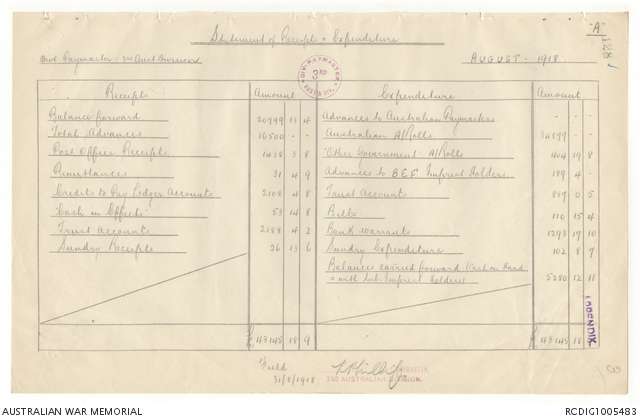 "A"
Statement of Receipts & Expenditure
Divl Paymaster - 3rd Aust Division
AUGUST - 1918.
DIV. PAYMASTER
3RD
AUSTN DIV.
Receipts Amount Expenditure Amount
Balance forward 20999 13 4
Total Advances 16500 - -
Post Office Receipts 1438 3 8
Remittances 31 4 9
Credits to Pay Ledger Accounts 2108 4 8
"Cash in Office" 53 14 8
Trust Accounts 4 2
Sundry Receipts 26 13 6
Advances to Australian Paymasters
Australian A/Rolls
"Other Government" A/Rolls 404 19 8
Advances to B.E.F. Imprest Holders 189 4 -
Trust Account 0 5
Bills 110 15 4
Bank warrants 1293 19 10
Sundry Expenditure 102 8 9
Balance carried forward (Cash on Hand
& with Sub-Imprest holders) 5280 12 11
£ 43145 18 9
£ 43145 18
APPENDIX
Field
31/8/1918
3RD AUSTRALIAN DIVISION
AUSTRALIAN WAR MEMORIAL
RCDIG1005483